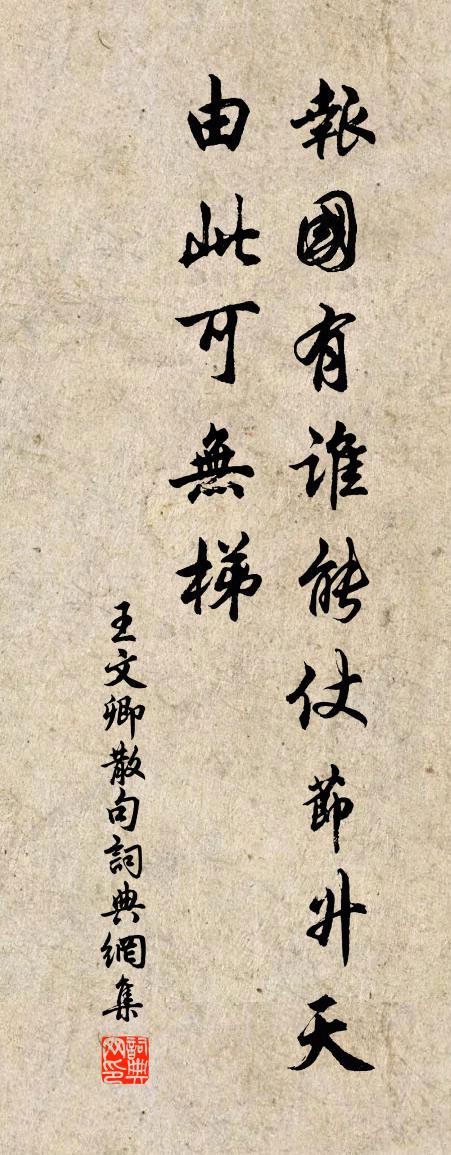 報國有誰能仗節升天
由此可無梯
王文卿散句詞典網集
詞典网印